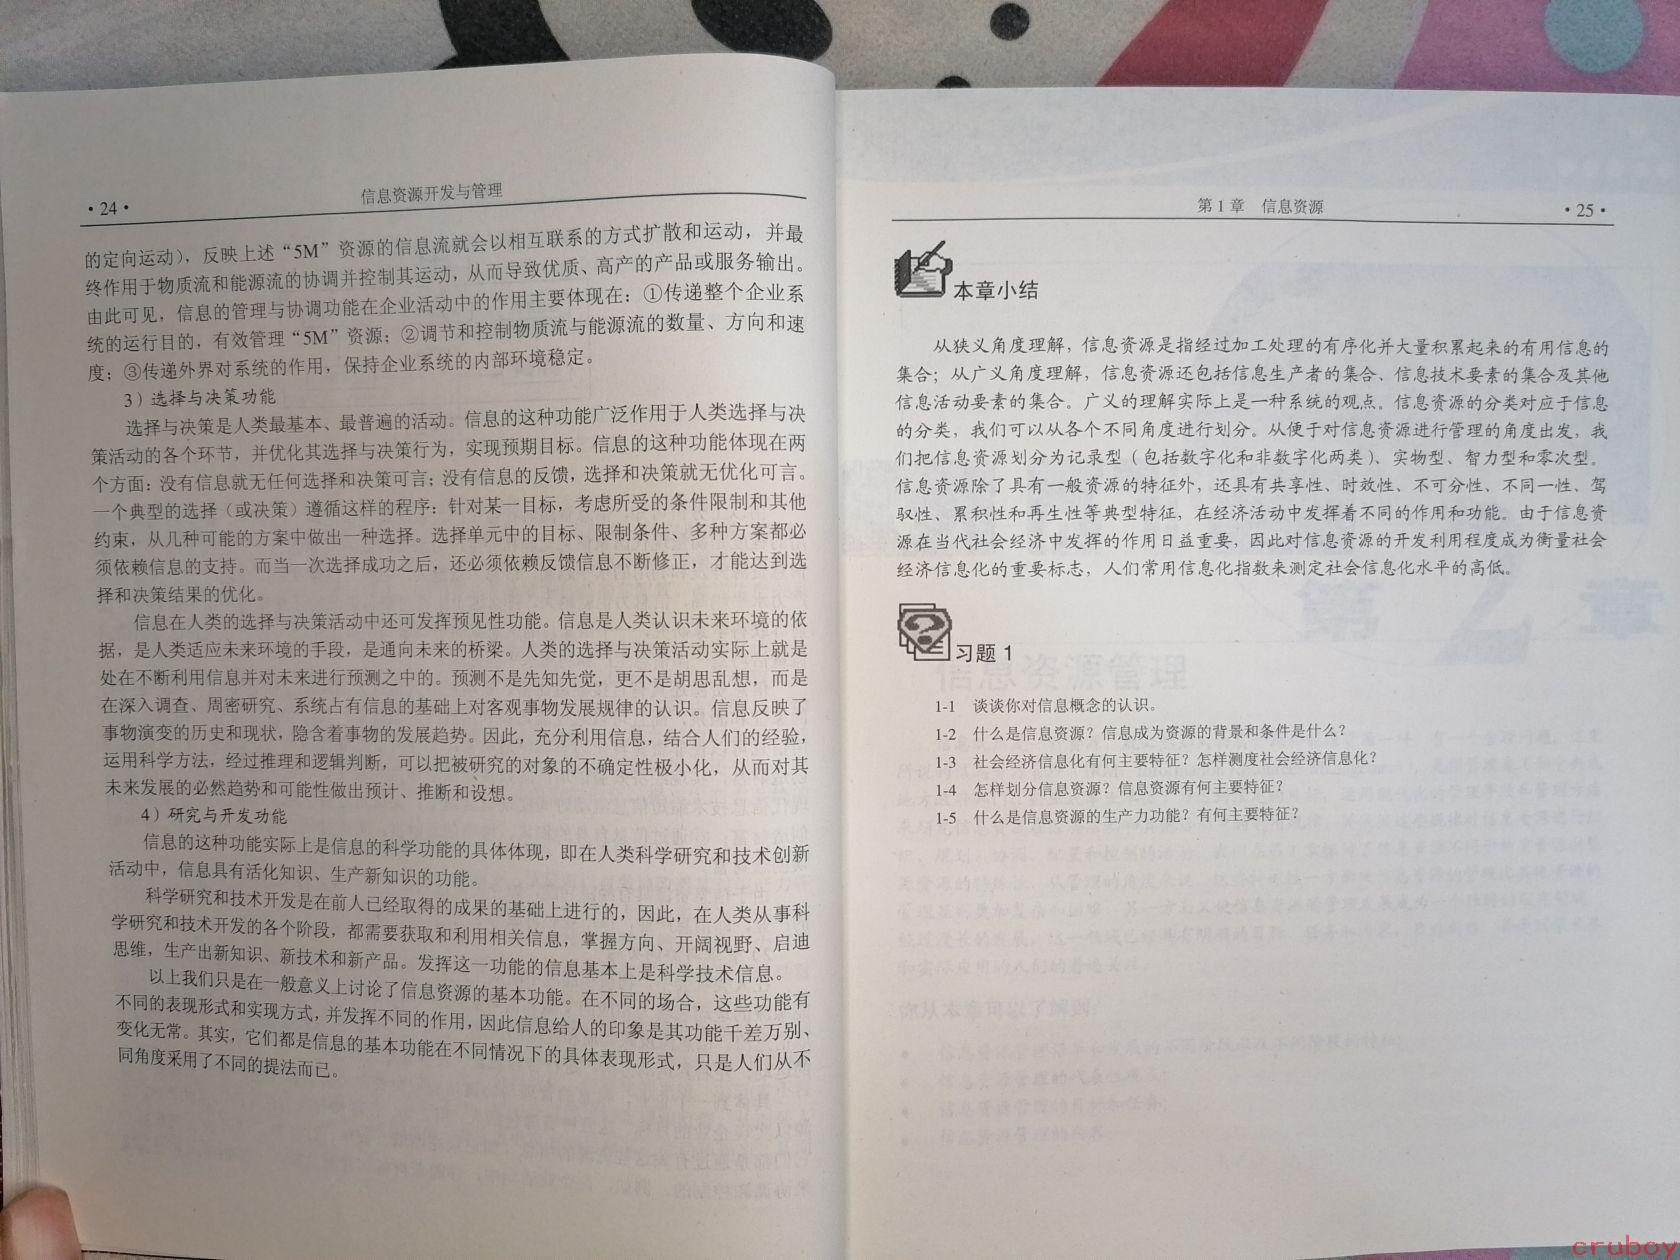 ·24·
信息资源开发与管理
的定向运动），反映上述“5M”资源的信息流就会以相互联系的方式扩散和运动，并最
终作用于物质流和能源流的协调并控制其运动，从而导致优质、高产的产品或服务输出。
由此可见，信息的管理与协调功能在企业活动中的作用主要体现在：①传递整个企业系
统的运行目的，有效管理“5M”资源；②调节和控制物质流与能源流的数量、方向和速
度；③传递外界对系统的作用，保持企业系统的内部环境稳定。
3）选择与决策功能
选择与决策是人类最基本、最普遍的活动。信息的这种功能广泛作用于人类选择与决
策活动的各个环节，并优化其选择与决策行为，实现预期目标。信息的这种功能体现在两
个方面：没有信息就无任何选择和决策可言；没有信息的反馈，选择和决策就无优化可言。
一个典型的选择（或决策）遵循这样的程序：针对某一目标，考虑所受的条件限制和其他
约束，从几种可能的方案中做出一种选择。选择单元中的目标、限制条件、多种方案都必
须依赖信息的支持。而当一次选择成功之后，还必须依赖反馈信息不断修正，才能达到选
择和决策结果的优化。
信息在人类的选择与决策活动中还可发挥预见性功能。信息是人类认识未来环境的依
据，是人类适应未来环境的手段，是通向未来的桥梁。人类的选择与决策活动实际上就是
处在不断利用信息并对未来进行预测之中的。预测不是先知先觉，更不是胡思乱想，而是
在深入调查、周密研究、系统占有信息的基础上对客观事物发展规律的认识。信息反映了
事物演变的历史和现状，隐含着事物的发展趋势。因此，充分利用信息，结合人们的经验，
运用科学方法，经过推理和逻辑判断，可以把被研究的对象的不确定性极小化，从而对其
未来发展的必然趋势和可能性做出预计、推断和设想。
4）研究与开发功能
信息的这种功能实际上是信息的科学功能的具体体现，即在人类科学研究和技术创新
活动中，信息具有活化知识、生产新知识的功能。
科学研究和技术开发是在前人已经取得的成果的基础上进行的，因此，在人类从事科
学研究和技术开发的各个阶段，都需要获取和利用相关信息，掌握方向、开阔视野、启迪
思维，生产出新知识、新技术和新产品。发挥这一功能的信息基本上是科学技术信息。
以上我们只是在一般意义上讨论了信息资源的基本功能。在不同的场合，这些功能有
不同的表现形式和实现方式，并发挥不同的作用，因此信息给人的印象是其功能千差万别、
变化无常。其实，它们都是信息的基本功能在不同情况下的具体表现形式，只是人们从不
同角度采用了不同的提法而已。
第1章 信息资源
·25·
本章小结
从狭义角度理解，信息资源是指经过加工处理的有序化并大量积累起来的有用信息的
集合；从广义角度理解，信息资源还包括信息生产者的集合、信息技术要素的集合及其他
信息活动要素的集合。广义的理解实际上是一种系统的观点。信息资源的分类对应于信息
的分类，我们可以从各个不同角度进行划分。从便于对信息资源进行管理的角度出发，我
们把信息资源划分为记录型（包括数字化和非数字化两类）、实物型、智力型和零次型。
信息资源除了具有一般资源的特征外，还具有共享性、时效性、不可分性、不同一性、驾
驭性、累积性和再生性等典型特征，在经济活动中发挥着不同的作用和功能。由于信息资
源在当代社会经济中发挥的作用日益重要，因此对信息资源的开发利用程度成为衡量社会
经济信息化的重要标志，人们常用信息化指数来测定社会信息化水平的高低。
习题1
1-1 谈谈你对信息概念的认识。
1-2 什么是信息资源？信息成为资源的背景和条件是什么？
1-3 社会经济信息化有何主要特征？怎样测度社会经济信息化？
1-4 怎样划分信息资源？信息资源有何主要特征？
1-5 什么是信息资源的生产力功能？有何主要特征？
cruboy